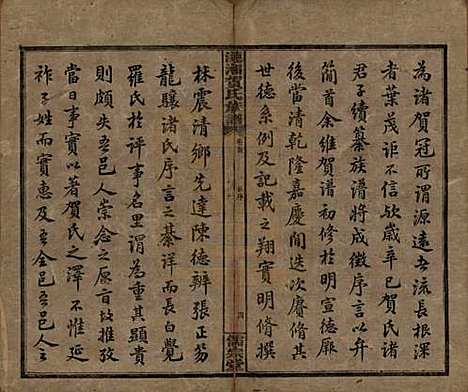 為諸賀冠所謂源遠者流長根深
者葉茂詎不信歟歲辛巳賀氏諸
君子續纂族譜將成徵序言以弁
簡首余維賀譜初修於明宣德厥
後當清乾隆嘉慶間迭次賡脩其
世德系例及記載之翔實明脩撰
賀氏族譜
四
儒宗堂
林震清鄉先達陳德辨張正笏
龍驤諸氏序言之綦詳而長白覺
羅氏於評事名里謂為重其顯貴
則頗失吾邑人崇念之原旨故推攷
當日事實以賀氏之澤不惟延
祚子姓而實惠及吾全邑吾邑人之